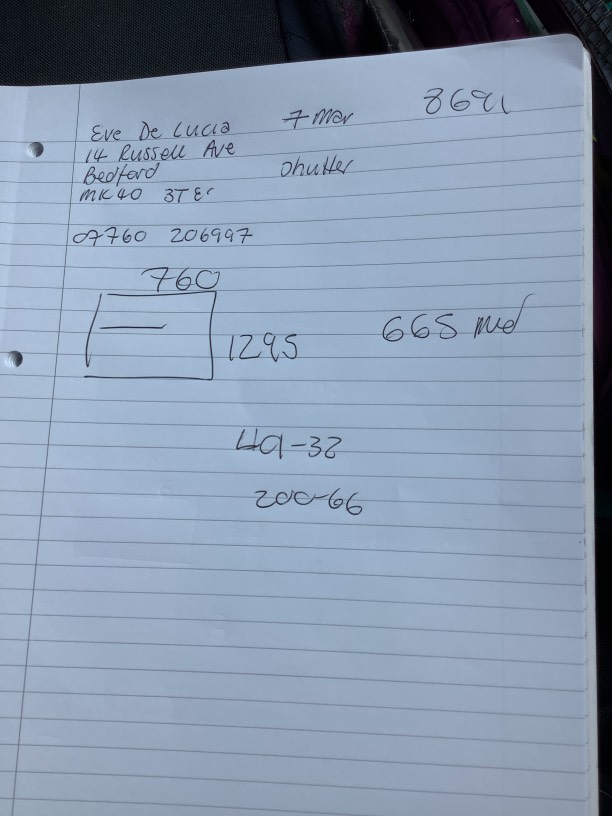 Eve De Lucia 7 Mar 8691
14 Russell Ave
Bedford Shutter
MK40 3TE
07760 206997
760
1295 665 Med
401-32
200-66